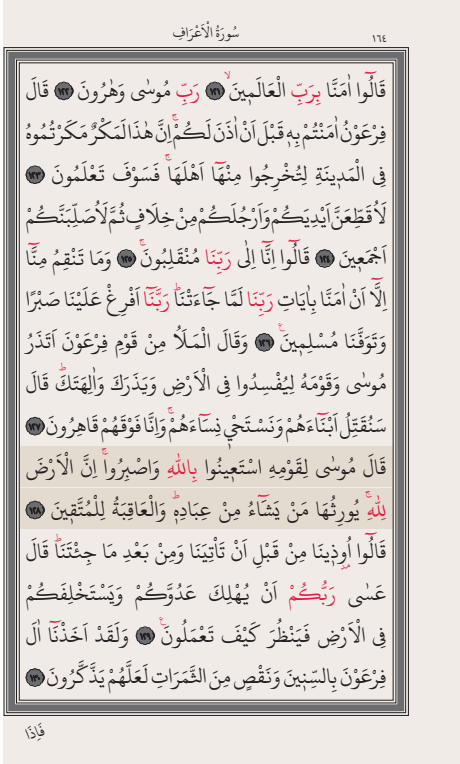 ١٦٤
سُورَةُ الْاَعْرَافِ
قَالُٓوا اٰمَنَّا بِرَبِّ الْعَالَم۪ينَۙ ﴿١٢١﴾ رَبِّ مُوسٰى وَهٰرُونَ ﴿١٢٢﴾ قَالَ
فِرْعَوْنُ اٰمَنْتُمْ بِه۪ قَبْلَ اَنْ اٰذَنَ لَكُمْۚ اِنَّ هٰذَا لَمَكْرٌ مَكَرْتُمُوهُ
فِي الْمَد۪ينَةِ لِتُخْرِجُوا مِنْهَٓا اَهْلَهَاۚ فَسَوْفَ تَعْلَمُونَ ﴿١٢٣﴾
لَاُقَطِّعَنَّ اَيْدِيَكُمْ وَاَرْجُلَكُمْ مِنْ خِلَافٍ ثُمَّ لَاُصَلِّبَنَّكُمْ
اَجْمَع۪ينَ ﴿١٢٤﴾ قَالُٓوا اِنَّٓا اِلٰى رَبِّنَا مُنْقَلِبُونَۚ ﴿١٢٥﴾ وَمَا تَنْقِمُ مِنَّٓا
اِلَّٓا اَنْ اٰمَنَّا بِاٰيَاتِ رَبِّنَا لَمَّا جَٓاءَتْنَاۜ رَبَّنَٓا اَفْرِغْ عَلَيْنَا صَبْرًا
وَتَوَفَّنَا مُسْلِم۪ينَ۟ ﴿١٢٦﴾ وَقَالَ الْمَلَاُ مِنْ قَوْمِ فِرْعَوْنَ اَتَذَرُ
مُوسٰى وَقَوْمَهُ لِيُفْسِدُوا فِي الْاَرْضِ وَيَذَرَكَ وَاٰلِهَتَكَۜ قَالَ
سَنُقَتِّلُ اَبْنَٓاءَهُمْ وَنَسْتَحْي۪ نِسَٓاءَهُمْۚ وَاِنَّا فَوْقَهُمْ قَاهِرُونَ ﴿١٢٧﴾
قَالَ مُوسٰى لِقَوْمِهِ اسْتَع۪ينُوا بِاللّٰهِ وَاصْبِرُواۚ اِنَّ الْاَرْضَ
لِلّٰهِۚ يُورِثُهَا مَنْ يَشَٓاءُ مِنْ عِبَادِه۪ۜ وَالْعَاقِبَةُ لِلْمُتَّق۪ينَ ﴿١٢٨﴾
قَالُٓوا اُو۫ذ۪ينَا مِنْ قَبْلِ اَنْ تَأْتِيَنَا وَمِنْ بَعْدِ مَا جِئْتَنَاۜ قَالَ
عَسٰى رَبُّكُمْ اَنْ يُهْلِكَ عَدُوَّكُمْ وَيَسْتَخْلِفَكُمْ
فِي الْاَرْضِ فَيَنْظُرَ كَيْفَ تَعْمَلُونَ۟ ﴿١٢٩﴾ وَلَقَدْ اَخَذْنَٓا اٰلَ
فِرْعَوْنَ بِالسِّن۪ينَ وَنَقْصٍ مِنَ الثَّمَرَاتِ لَعَلَّهُمْ يَذَّكَّرُونَ ﴿١٣٠﴾
فَاِذَا